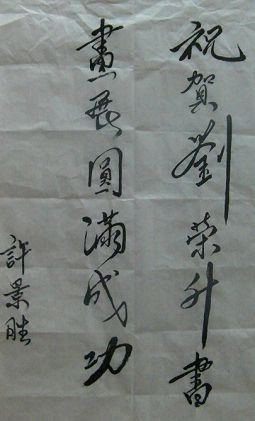 祝賀劉榮升書
畫展圓滿成功
許景勝